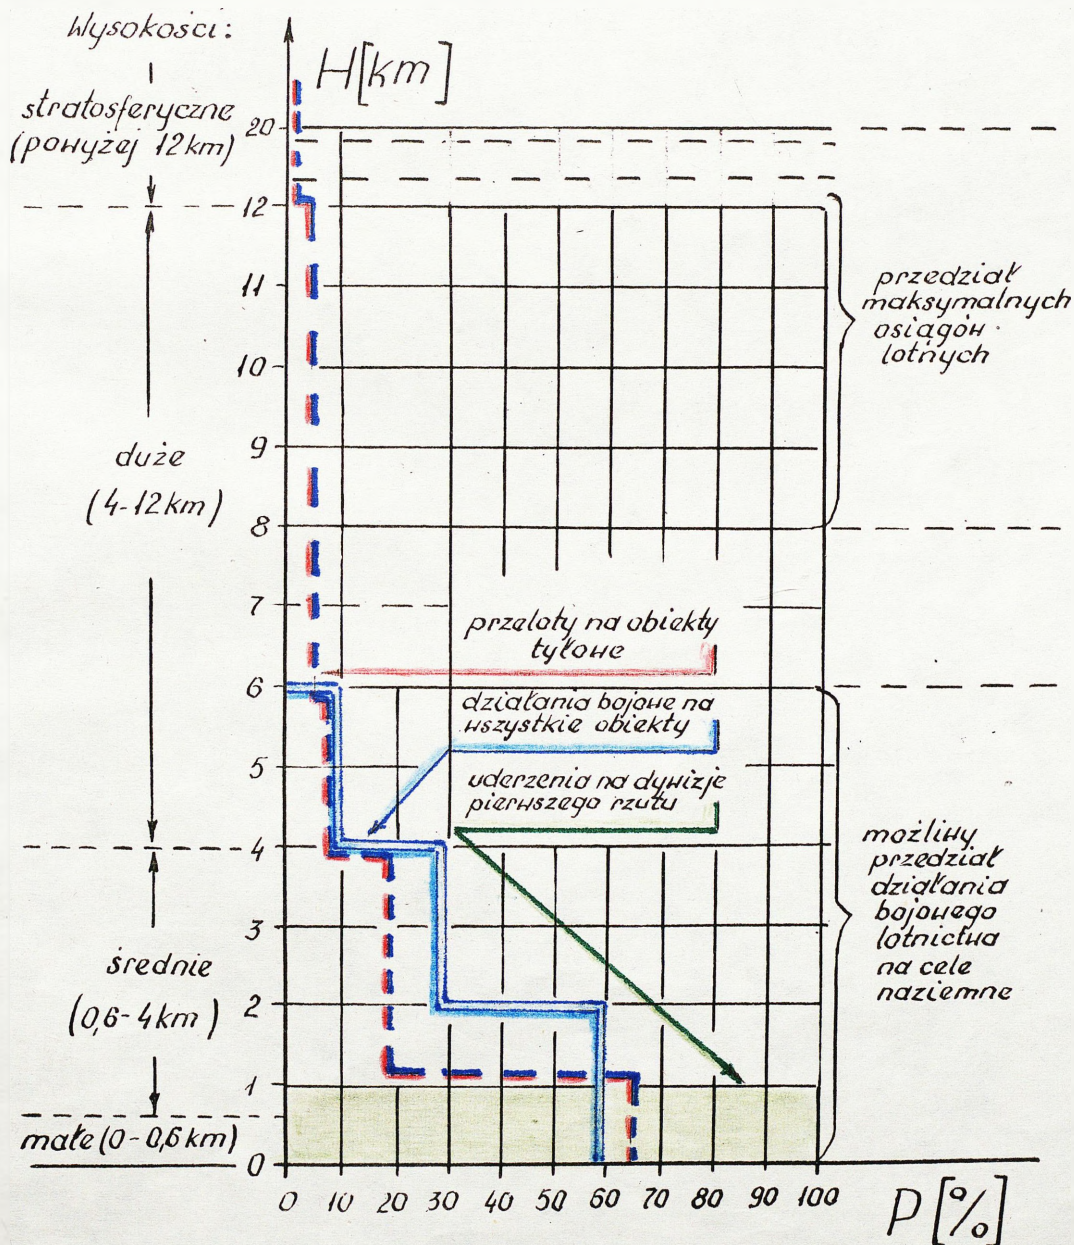 Wysokości:
stratosferyczne
(powyżej 12km)
duże
(4-12km)
średnie
(0,6-4km)
małe (0-0,6km)
H[km]
20
12
11
10
9
8
7
6
5
4
3
2
1
0
przeloty na obiekty
tyłowe
działania bojowe na
wszystkie obiekty
uderzenia na dywizje
pierwszego rzutu
przedział
maksymalnych
osiągów
lotnych
możliwy
przedział
działania
bojowego
lotnictwa
na cele
naziemne
0 10 20 30 40 50 60 70 80 90 100
P[%]